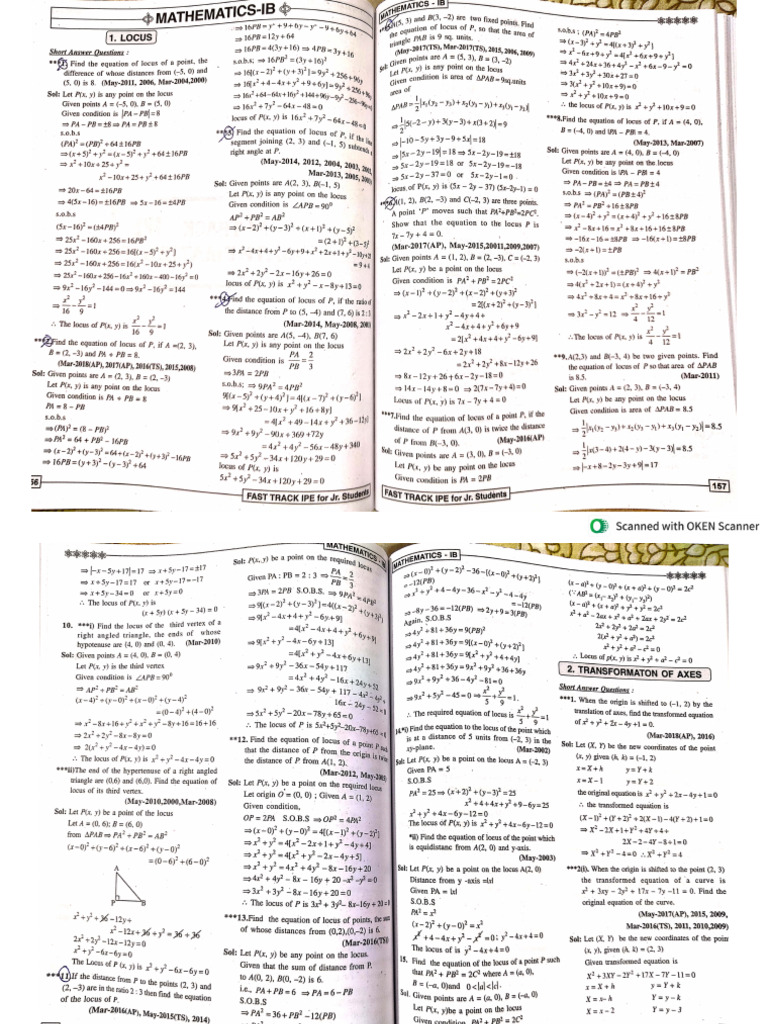 MATHEMATICS-IB
1. LOCUS
Short Answer Questions :
Find the equation of locus of a point, the
difference of whose distances from (–5, 0) and
(5, 0) is 8. (May-2011, 2006, Mar-2004,2000)
Sol: Let P(x, y) is any point on the locus
Given points A = (–5, 0), B = (5, 0)
Given condition is |PA – PB| = 8
⇒ PA – PB = ±8 ⇒ PA = PB ± 8
s.o.b.s
(PA)² = (PB)² + 64 ± 16PB
⇒ (x+5)² + y² = (x–5)² + y² + 64 ± 16PB
⇒ x² + 10x + 25 + y² =
x² – 10x + 25 + y² + 64 ± 16PB
⇒ 20x – 64 = ±16PB
⇒ 4(5x – 16) = ±16PB ⇒ 5x – 16 = ±4PB
s.o.b.s
(5x – 16)² = (±4PB)²
⇒ 25x² – 160x + 256 = 16PB²
⇒ 25x² – 160x + 256 = 16[(x–5)² + y²]
⇒ 25x² – 160x + 256 = 16(x² – 10x + 25 + y²)
⇒ 25x² – 160x + 256 – 16x² + 160x – 400 – 16y² = 0
⇒ 9x² – 16y² – 144 = 0 ⇒ 9x² – 16y² = 144
⇒ x²/16 – y²/9 = 1
∴ The locus of P(x, y) is x²/16 – y²/9 = 1
Find the equation of locus of P, if A = (2, 3),
B = (2, –3) and PA + PB = 8.
(Mar-2018(AP), 2017(AP), 2016(TS), 2015, 2008)
Sol: Given points are A = (2, 3), B = (2, –3)
Let P(x, y) is any point on the locus
Given condition is PA + PB = 8
PA = 8 – PB
s.o.b.s
⇒ (PA)² = (8 – PB)²
⇒ PA² = 64 + PB² – 16PB
⇒ (x–2)² + (y–3)² = 64 + (x–2)² + (y+3)² – 16PB
⇒ 16PB = (y+3)² – (y–3)² + 64
⇒ 16PB = y² + 9 + 6y – y² – 9 + 6y + 64
⇒ 16PB = 12y + 64
⇒ 16PB = 4(3y + 16) ⇒ 4PB = 3y + 16
s.o.b.s; ⇒ 16PB² = (3y + 16)²
⇒ 16[(x – 2)² + (y + 3)²] = 9y² + 256 + 96y
⇒ 16[x² + 4 – 4x + y² + 9 + 6y] = 9y² + 256 + 96y
⇒ 16x² + 64 – 64x + 16y² + 144 + 96y – 9y² – 256 – 96y = 0
⇒ 16x² + 7y² – 64x – 48 = 0
locus of P(x, y) is 16x² + 7y² – 64x – 48 = 0
Find the equation of locus of P, if the line
segment joining (2, 3) and (–1, 5) subtends a
right angle at P.
(May-2014, 2012, 2004, 2003,
Mar-2013, 2005,
Sol: Given points are A(2, 3), B(–1, 5)
Let P(x, y) is any point on the locus
Given condition is ∠APB = 90°
AP² + PB² = AB²
⇒ (x–2)² + (y–3)² + (x+1)² + (y–5)²
= (2+1)² + (3–5)²
⇒ x² – 4x + 4 + y² – 6y + 9 + x² + 2x + 1 + y² – 10y + 25
= 9 + 4
⇒ 2x² + 2y² – 2x – 16y + 26 = 0
locus of P(x, y) is x² + y² – x – 8y + 13 = 0
Find the equation of locus of P, if the ratio of
the distance from P to (5, –4) and (7, 6) is 2 : 3
(Mar-2014, May-2008,
Sol: Given points are A(5, –4), B(7, 6)
Let P(x, y) is any point on the locus
Given condition is PA/PB = 2/3
⇒ 3PA = 2PB
s.o.b.s; ⇒ 9PA² = 4PB²
9[(x–5)² + (y+4)²] = 4[(x–7)² + (y–6)²]
⇒ 9[x² + 25 – 10x + y² + 16 + 8y]
= 4[x² + 49 – 14x + y² + 36 – 12y]
⇒ 9x² + 9y² – 90x + 369 + 72y
= 4x² + 4y² – 56x – 48y + 340
⇒ 5x² + 5y² – 34x + 120y + 29 = 0
locus of P(x, y) is
5x² + 5y² – 34x + 120y + 29 = 0
FAST TRACK IPE for Jr. Students
MATHEMATICS - IB
A(5, 3) and B(3, –2) are two fixed points. Find
the equation of locus of P, so that the area of
triangle PAB is 9 sq. units.
(May-2017(TS), Mar-2017(TS), 2015, 2006, 2009)
Sol: Given points are A = (5, 3), B = (3, –2)
Let P(x, y) is any point on the locus
Given condition is area of ΔPAB = 9sq.units
area of
ΔPAB = ½|x₁(y₂ – y₃) + x₂(y₃ – y₁) + x₃(y₁ – y₂)|
⇒ ½|5(–2–y) + 3(y–3) + x(3+2)| = 9
⇒ |–10 – 5y + 3y – 9 + 5x| = 18
⇒ |5x – 2y – 19| = 18 ⇒ 5x – 2y – 19 = ±18
⇒ 5x – 2y – 19 = 18 or 5x – 2y – 19 = –18
⇒ 5x – 2y – 37 = 0 or 5x – 2y – 1 = 0
locus of P(x, y) is (5x – 2y – 37) (5x–2y–1) = 0
A(1, 2), B(2, –3) and C(–2, 3) are three points.
A point "P" moves such that PA² + PB² = 2PC².
Show that the equation to the locus is P is
7x – 7y + 4 = 0.
(Mar-2017(AP), May-2015, 2011, 2009, 2007)
Sol: Given points A = (1, 2), B = (2, –3), C = (–2, 3)
Let P(x, y) be a point on the locus
Given condition is PA² + PB² = 2PC²
⇒ (x–1)² + (y–2)² + (x–2)² + (y+3)²
= 2[(x+2)² + (y–3)²]
⇒ x² – 2x + 1 + y² – 4y + 4 +
x² – 4x + 4 + y² + 6y + 9
= 2[x² + 4x + 4 + y² – 6y + 9]
⇒ 2x² + 2y² – 6x + 2y + 18
= 2x² + 2y² + 8x – 12y + 26
⇒ 8x – 12y + 26 + 6x – 2y – 18 = 0
⇒ 14x – 14y + 8 = 0 ⇒ 2(7x – 7y + 4) = 0
Locus of P(x, y) is 7x – 7y + 4 = 0
***7.Find the equation of locus of a point P, if the
distance of P from A(3, 0) is twice the distance
of P from B(–3, 0). (May-2016(AP)
Sol: Given points are A = (3, 0), B = (–3, 0)
Let P(x, y) be any point on the locus
Given condition is PA = 2PB
s.o.b.s ; (PA)² = 4PB²
⇒ (x–3)² + y² = 4[(x+3)² + y²]
⇒ x² – 6x + 9 + y² = 4[x² + 6x + 9 + y²]
⇒ 4x² + 24x + 36 + 4y² – x² + 6x – 9 – y² = 0
⇒ 3x² + 3y² + 30x + 27 = 0
⇒ 3(x² + y² + 10x + 9) = 0
⇒ x² + y² + 10x + 9 = 0
∴ the locus of P(x, y) is x² + y² + 10x + 9 = 0
***8.Find the equation of locus of P, if A = (4, 0),
B = (–4, 0) and |PA – PB = 4.
(May-2013, Mar-2007)
Sol: Given points are A = (4, 0), B = (–4, 0)
Let P(x, y) be any point on the locus
Given condition is |PA – PB = 4
⇒ PA – PB = ±4 ⇒ PA = PB ± 4
s.o.b.s ⇒ (PA)² = (PB ± 4)²
⇒ PA² = PB² + 16 ± 8PB
⇒ (x–4)² + y² = (x+4)² + y² + 16 ± 8PB
⇒ x² – 8x + 16 = x² + 8x + 16 + 16 ± 8PB
⇒ –16x – 16 = ±8PB ⇒ –16(x+1) = ±8PB
⇒ –2(x+1) = ±PB
s.o.b.s
⇒ (–2(x+1))² = (±PB)² ⇒ 4(x+1)² = PB²
⇒ 4(x² + 2x + 1) = (x+4)² + y²
⇒ 4x² + 8x + 4 = x² + 8x + 16 + y²
⇒ 3x² – y² = 12 ⇒ x²/4 – y²/12 = 1
∴ The locus of P(x, y) is x²/4 – y²/12 = 1
**9. A(2,3) and B(–3, 4) be two given points. Find
the equation of locus of P so that area of ΔPAB
is 8.5. (Mar-2011)
Sol: Given points A = (2, 3), B = (–3, 4)
Let P(x, y) be any point on the locus
Given condition is area of ΔPAB = 8.5
⇒ ½|x₁(y₂ – y₃) + x₂(y₃ – y₁) + x₃(y₁ – y₂)| = 8.5
⇒ ½|x(3–4) + 2(4–y) – 3(y–3)| = 8.5
⇒ |–x + 8 – 2y – 3y + 9| = 17
FAST TRACK IPE for Jr. Students
157
Scanned with OKEN Scanner
⇒ |–x – 5y + 17| = 17 ⇒ x + 5y – 17 = ±17
⇒ x + 5y – 17 = 17 or x + 5y – 17 = –17
⇒ x + 5y – 34 = 0 or x + 5y = 0
∴ The locus of P(x, y) is
(x + 5y) (x + 5y – 34) = 0
10. ***i) Find the locus of the third vertex of a
right angled triangle, the ends of whose
hypotenuse are (4, 0) and (0, 4). (Mar-2010)
Sol: Given points A = (4, 0), B = (0, 4)
Let P(x, y) is the third vertex
Given condition is ∠APB = 90°
⇒ AP² + PB² = AB²
(x–4)² + (y–0)² + (x–0)² + (y–4)²
= (0–4)² + (4–0)²
⇒ x² – 8x + 16 + y² + x² + y² – 8y + 16 = 16 + 16
⇒ 2x² + 2y² – 8x – 8y = 0
⇒ 2(x² + y² – 4x – 4y) = 0
∴ The locus of P(x, y) is x² + y² – 4x – 4y = 0
***ii)The end of the hypertenuse of a right angled
triangle are (0,6) and (6,0). Find the equation of
locus of its third vertex.
(May-2010,2000, Mar-2008)
Sol: Let P(x, y) be a point of the locus
Let A = (0, 6); B = (6, 0)
from ΔPAB ⇒ PA² + PB² = AB²
(x–0)² + (y–6)² + (x–6)² + (y–0)²
= (0–6)² + (6–0)²
A
P
B
x² + y² + 36 – 12y +
x² – 12x + 36 + y² = 36 + 36
2x² + 2y² – 12x – 12y = 0
x² + y² – 6x – 6y = 0
The Locus of P (x, y) is x² + y² – 6x – 6y = 0
11. If the distance from P to the points (2, 3) and
(2, –3) are in the ratio 2 : 3 then find the equation
of the locus of P.
(Mar-2016(AP), May-2015(TS), 2014)
Sol: P(x, y) be a point on the required locus
Given PA : PB = 2 : 3 ⇒ PA/PB = 2/3
⇒ 3PA = 2PB S.O.B.S ⇒ 9PA² = 4PB²
⇒ 9[(x–2)² + (y–3)²] = 4[(x–2)² + (y+3)²]
⇒ 9[x² – 4x + 4 + y² – 6y + 9]
= 4[x² – 4x + 4 + y² + 6y + 9]
⇒ 9[x² + y² – 4x – 6y + 13]
= 4[x² + y² – 4x + 6y + 13]
⇒ 9x² + 9y² – 36x – 54y + 117
= 4x² + 4y² – 16x + 24y + 52
⇒ 9x² + 9y² – 36x – 54y + 117 – 4x² – 4y² +
16x – 24y – 52 = 0
⇒ 5x² + 5y² – 20x – 78y + 65 = 0
∴ The locus of P is 5x² + 5y² – 20x – 78y + 65 = 0
**12. Find the equation of locus of a point P such
that the distance of P from the origin is twice
the distance of P from A(1, 2).
(Mar-2012, May-
Sol: Let P(x, y) be a point on the required locus
Let origin O = (0, 0) ; Given A = (1, 2)
Given condition,
OP = 2PA S.O.B.S ⇒ OP² = 4PA²
⇒ (x–0)² + (y–0)² = 4[(x–1)² + (y–2)²]
⇒ x² + y² = 4[x² – 2x + 1 + y² – 4y + 4]
⇒ x² + y² = 4[x² + y² – 2x – 4y + 5]
⇒ x² + y² = 4x² + 4y² – 8x – 16y + 20
⇒ 4x² + 4y² – 8x – 16y + 20 – x² – y² = 0
⇒ 3x² + 3y² – 8x – 16y + 20 = 0
∴ The locus of P is 3x² + 3y² – 8x – 16y + 20 = 0
***13.Find the equation of locus of points, the sum
of whose distances from (0,2),(0,–2) is 6.
(Mar-2016(TS)
Sol: Let P(x, y) be any point on the locus.
Given that the sum of distance from P.
to A(0, 2), B(0, –2) is 6.
i.e., PA + PB = 6 ⇒ PA = 6 – PB
S.O.B.S
⇒ PA² = 36 + PB² – 12(PB)
MATHEMATICS - IB
⇒ (x–0)² + (y–2)² – 36 – [(x–0)² + (y+2)²]
= –12(PB)
⇒ x² + y² + 4 – 4y – 36 – x² – y² – 4 – 4y
= –12(PB)
⇒ –8y – 36 = –12(PB) ⇒ 2y + 9 = 3(PB)
Again, S.O.B.S
⇒ 4y² + 81 + 36y = 9(PB)²
⇒ 4y² + 81 + 36y = 9[(x–0)² + (y+2)²]
⇒ 4y² + 81 + 36y = 9[x² + y² + 4y + 4]
⇒ 4y² + 81 + 36y = 9x² + 9y² + 36 + 36y
⇒ 9x² + 9y² + 36 – 4y² – 81 = 0
⇒ 9x² + 5y² – 45 = 0 ⇒ x²/5 + y²/9 = 1
∴ The required equation of locus is x²/5 + y²/9 = 1
14.*i) Find the equation to the locus of the point which
is at a distance of 5 units from (–2, 3) in the
xy-plane. (Mar-2002)
Sol: Let P(x, y) be a point on the locus A = (–2, 3)
Given PA = 5
S.O.B.S
PA² = 25 ⇒ (x+2)² + (y–3)² = 25
x² + 4 + 4x + y² + 9 – 6y = 25
x² + y² + 4x – 6y – 12 = 0
The locus of P(x, y) is x² + y² + 4x – 6y – 12 = 0
*ii) Find the equation of locus of the point which
is equidistanc from A(2, 0) and y-axis.
(May-2003)
Sol: Let P(x, y) be a point on the locus A(2, 0)
Distance from y -axis =|x|
Given PA = |x|
S.O.B.S
PA² = x²
(x–2)² + (y–0)² = x²
x² + 4 – 4x + y² – x² = 0 ; y² – 4x + 4 = 0
The locus of is y² – 4x + 4 = 0
15. Find the equation of the locus of a point P such
that PA² + PB² = 2C² where A = (a, 0),
B = (–a, 0)and 0<|a|<|c|.
Sol. Given points are A = (a, 0), B = (–a, 0)
Let P(x, y)be a point on the locus
Given condition PA² + PB² = 2C²
(x–a)² + (y–0)² + (x+a)² + (y–0)² = 2c²
(∵AB² = (x₁ – x₂)² + (y₁ – y₂)²)
(x–a)² + (x+a)² + y² + y² = 2c²
x² + a² – 2ax + x² + a² + 2ax + 2y² = 2c²
2x² + 2y² + 2a² = 2c²
2(x² + y² + a²) = 2c²
x² + y² + a² – c² = 0
∴ Locus of p(x, y) is x² + y² + a² – c² = 0
2. TRANSFORMATON OF AXES
Short Answer Questions :
***1. When the origin is shifted to (–1, 2) by the
translation of axes, find the transformed equation
of x² + y² + 2x – 4y + 1 = 0.
(Mar-2018(AP), 2016)
Sol: Let (X, Y) be the new coordinates of the point
(x, y) given (h, k) = (–1, 2)
x = X + h y = Y + k
x = X – 1 y = Y + 2
the original equation is x² + y² + 2x – 4y + 1 = 0
∴ the transformed equation is
(X–1)² + (Y+2)² + 2(X–1) – 4(Y+2) + 1 = 0
⇒ X² – 2X + 1 + Y² + 4Y + 4 +
2X – 2 – 4Y – 8 + 1 = 0
⇒ X² + Y² – 4 = 0 ∴ X² + Y² = 4
***2(i). When the origin is shifted to the point (2, 3)
the transformed equation of a curve is
x² + 3xy – 2y² + 17x – 7y – 11 = 0. Find the
original equation of the curve.
(May-2017(AP), 2015, 2009,
Mar-2016(TS), 2011, 2010, 2009)
Sol: Let (X, Y) be the new coordinates of the point
(x, y), given (h, k) = (2, 3)
Given transformed equation is
X² + 3XY – 2Y² + 17X – 7Y – 11 = 0
x = X + h y = Y + k
X = x – h Y = y – k
X = x – 2 Y = y – 3